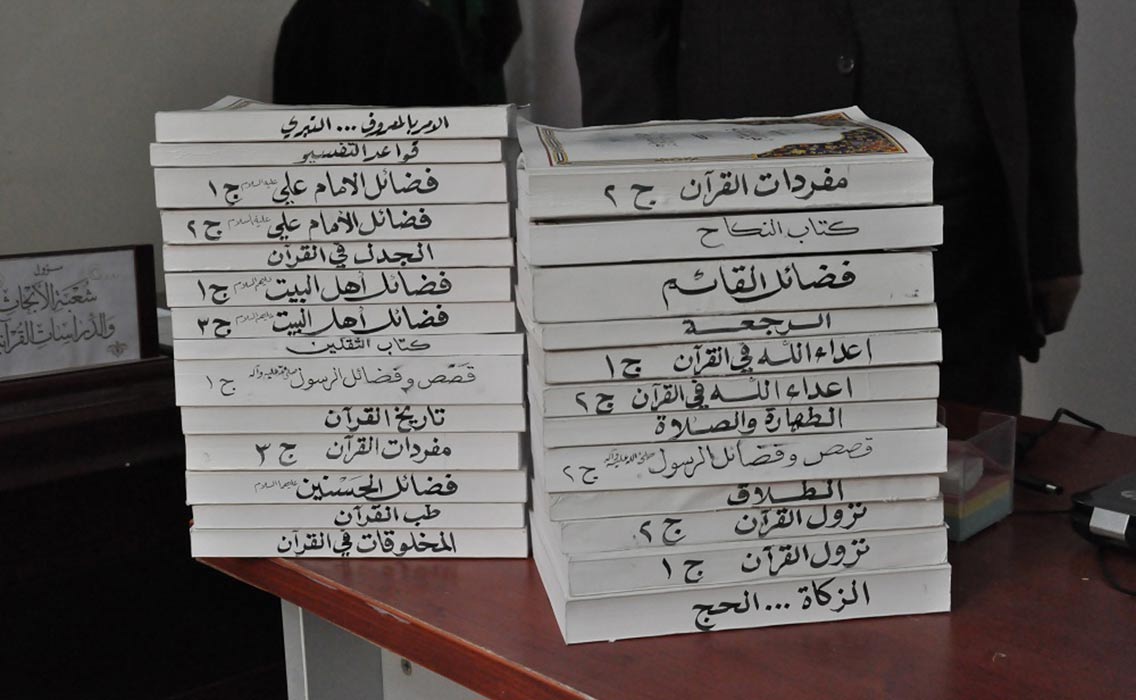 الامر بالمعروف ... التبري
قواعد التفسير
فضائل الامام علي عليه السلام ج ١
فضائل الامام علي عليه السلام ج ٢
الجدل في القرآن
فضائل أهل البيت عليهم السلام ج ١
فضائل أهل البيت عليهم السلام ج ٣
كتاب الثقلين
قصص و فضائل الرسول صلى الله عليه وآله ج ١
تاريخ القرآن
مفردات القرآن ج ٣
فضائل الحسنين عليهما السلام
طب القرآن
المخلوقات في القرآن
مفردات القرآن ج ٢
كتاب النكاح
فضائل القائم
الرجعة
اعداء الله في القرآن ج ١
اعداء الله في القرآن ج ٢
الطهارة والصلاة
قصص و فضائل الرسول صلى الله عليه وآله ج ٢
الطلاق
نزول القرآن ج ٢
نزول القرآن ج ١
الزكاة ... الحج
مسؤول
شعبة الأبحاث
والدراسات القرآنية